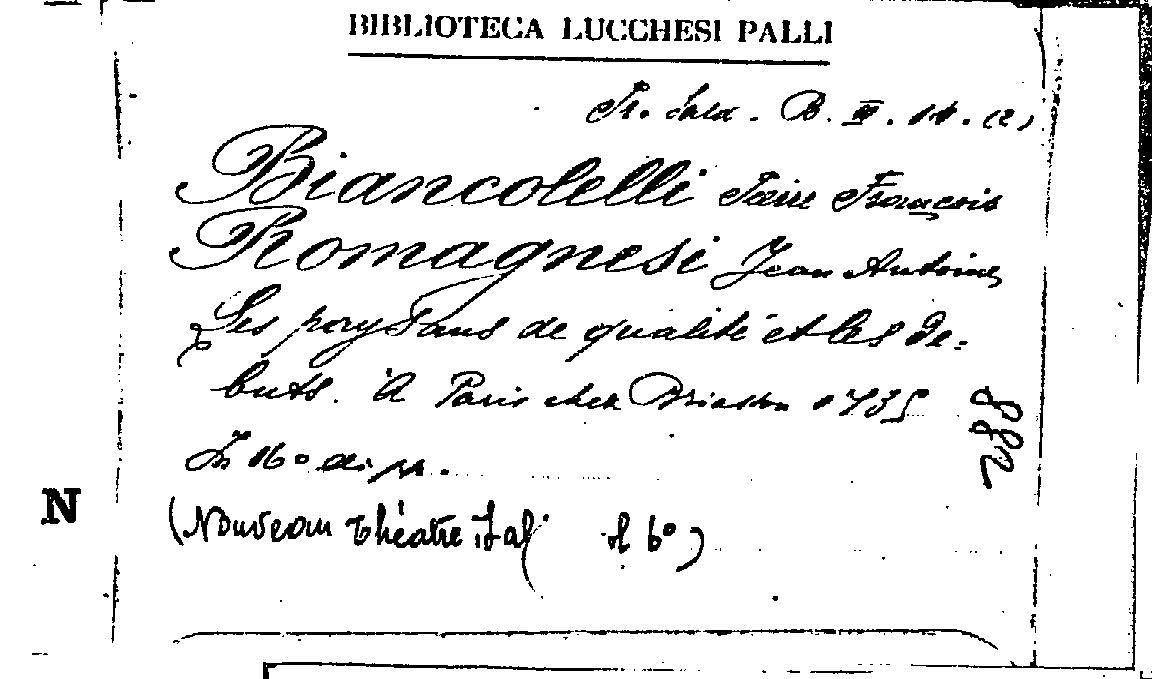 BIBLIOTECA LUCCHESI PALLI
Pr. Sala. B. III. 14. (2)
Biancolelli Pierre François
Romagnesi Jean Antoine
Les paysans de qualité et les dé=
buts. A Paris chez Briasson 1735
In 16º di pp.
(Nouveau théatre Ital 6º)
N
288